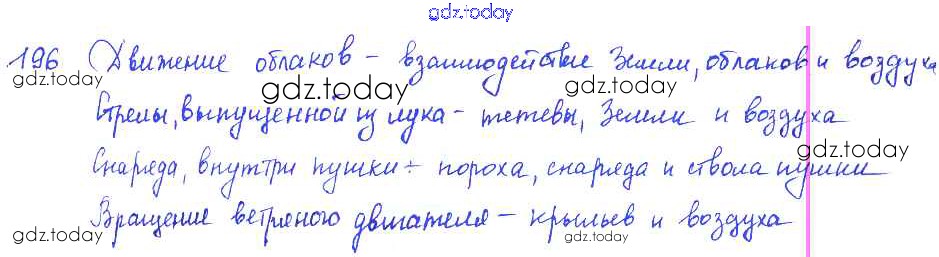 gdz.today
196 Движение облаков - взаимодействие Земли, облаков и воздуха
gdz.today
gdz.today
gdz.today
Стрелы, выпущенной из лука - тетевы, Земли и воздуха
gdz.today
Снаряда, внутри пушки - пороха, снаряда и ствола пушки
Вращение ветряного двигателя - крыльев и воздуха
gdz.today
gdz.today